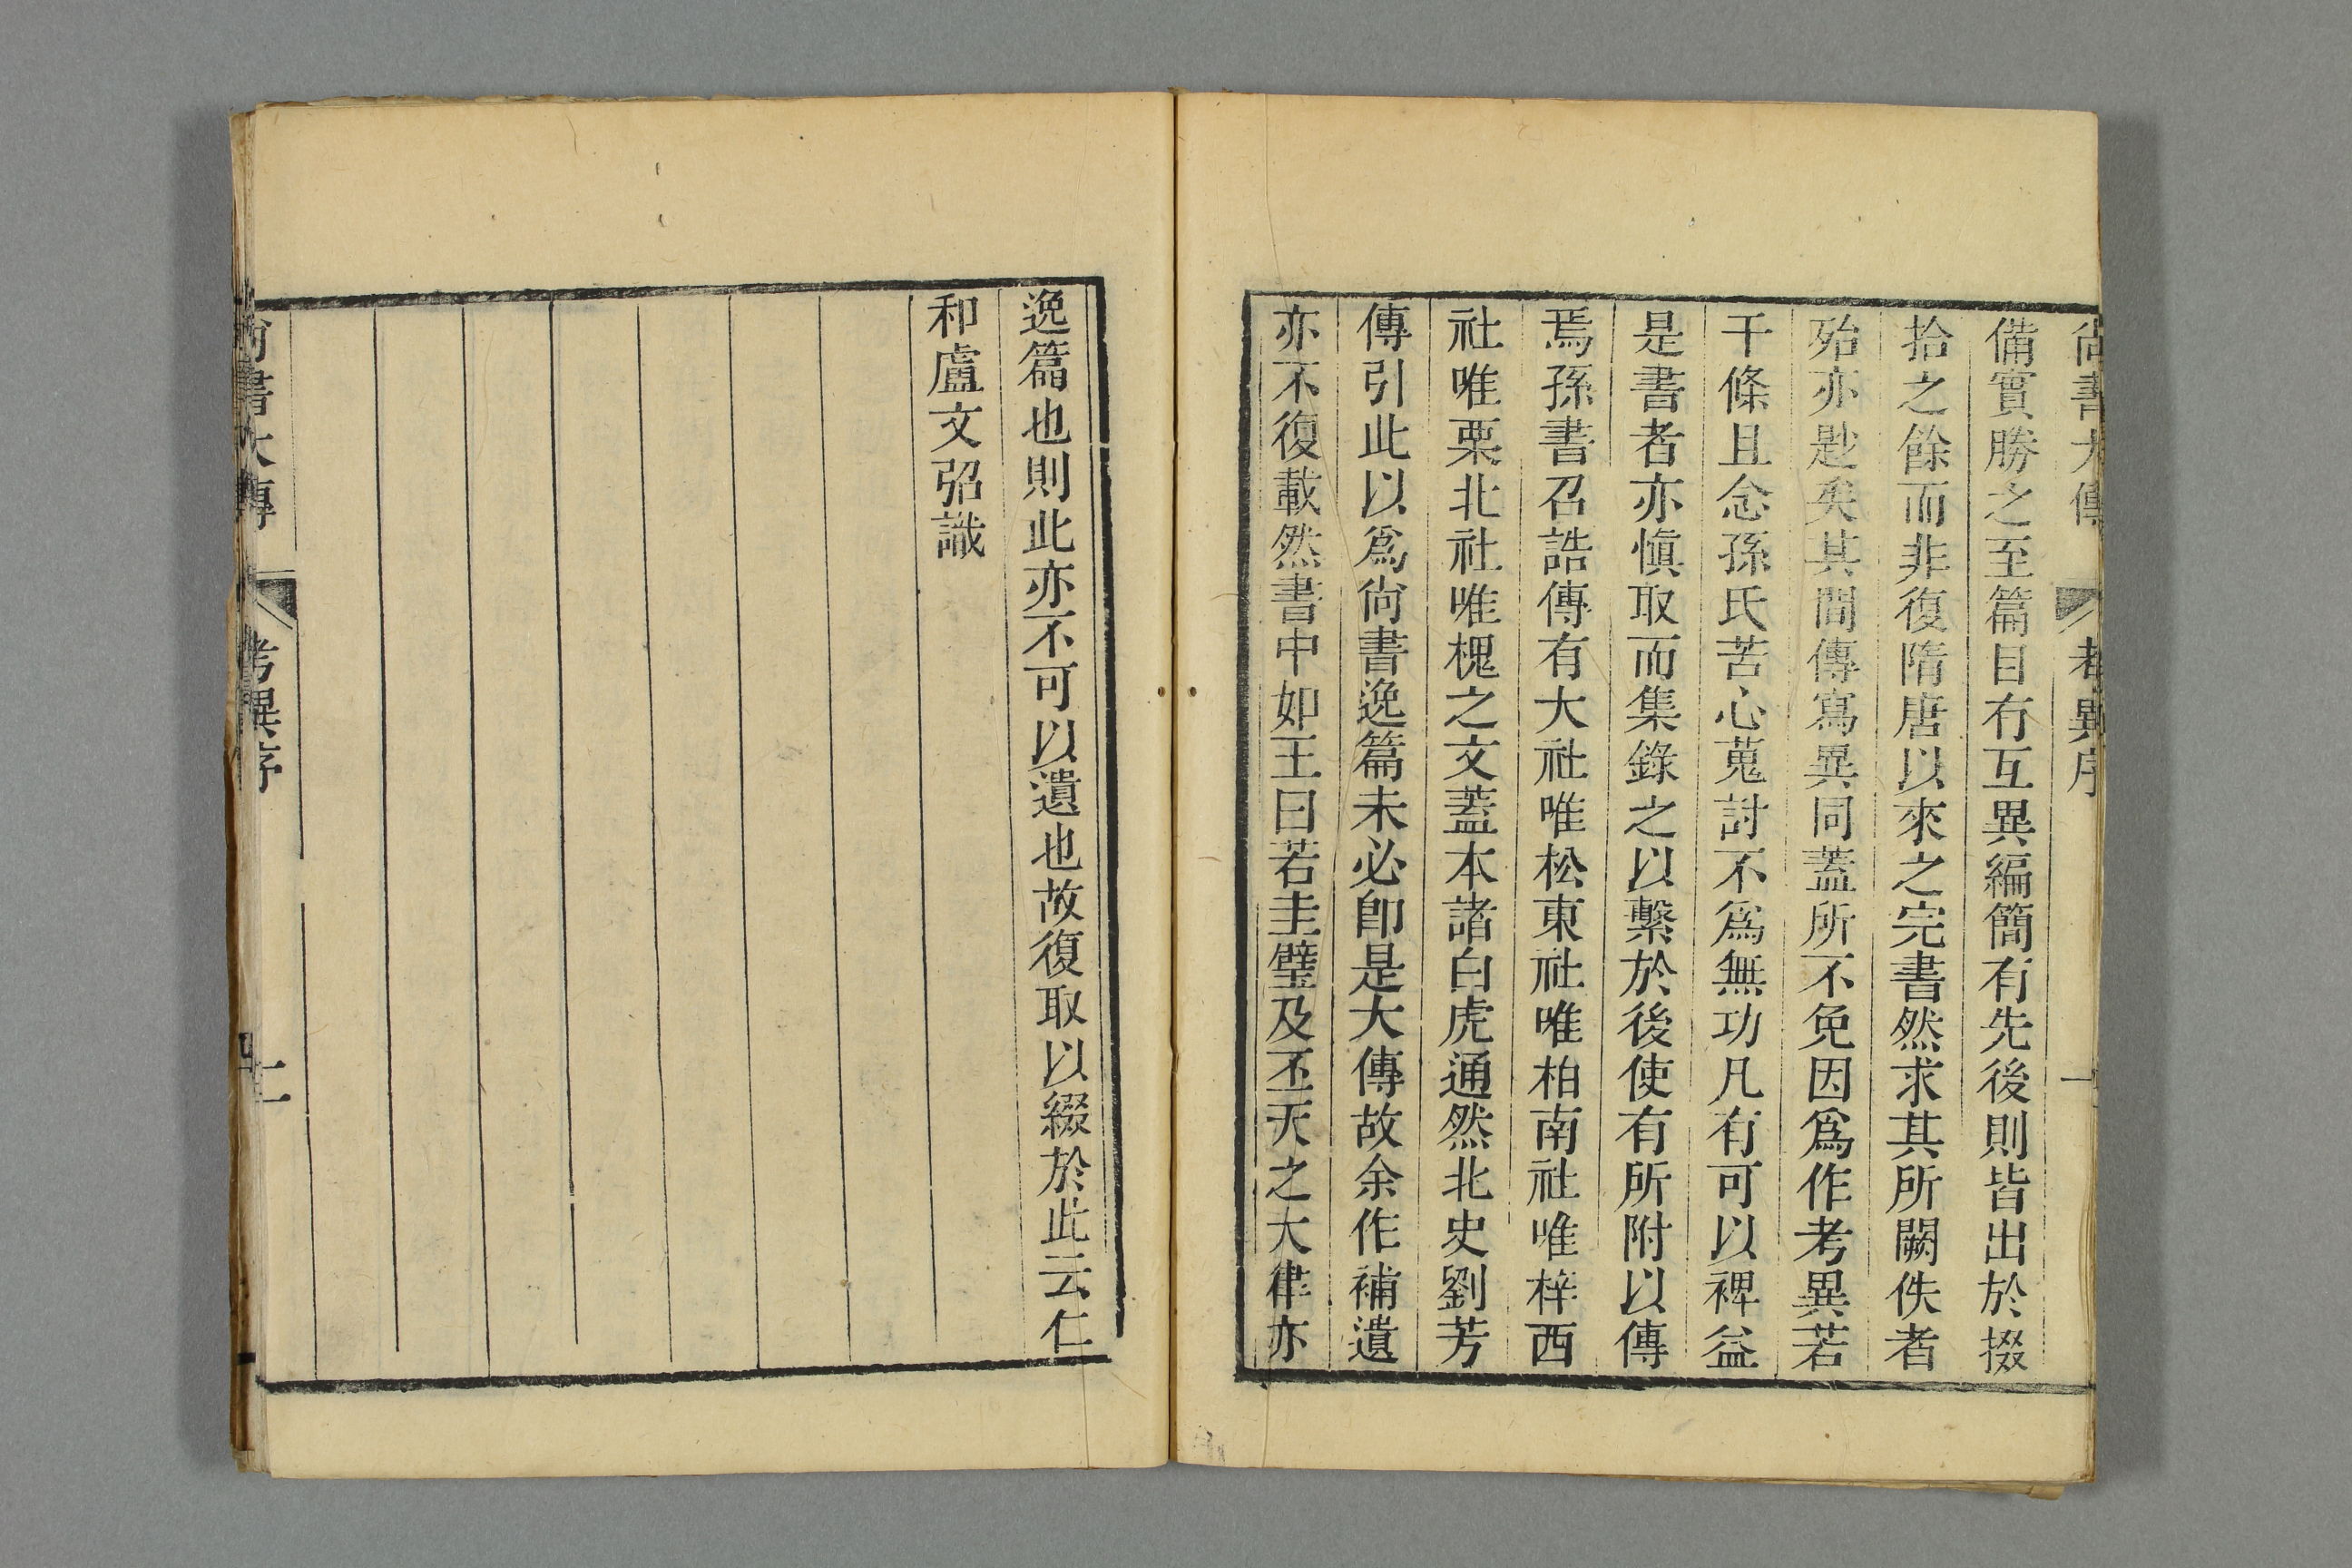 尚書大傳 考異序 一
備實勝之至篇目有互異編簡有先後則皆出於掇
拾之餘而非復隋唐以來之完書然求其所闕佚者
殆亦尟矣其閒傳寫異同蓋所不免因爲作考異若
干條且念孫氏苦心蒐討不爲無功凡有可以裨益
是書者亦愼取而集錄之以繫於後使有所附以傳
焉孫書召誥傳有大社唯松東社唯柏南社唯梓西
社唯栗北社唯槐之文蓋本諸白虎通然北史劉芳
傳引此以爲尙書逸篇未必卽是大傳故余作補遺
亦不復載然書中如王曰若圭璧及丕天之大律亦
逸篇也則此亦不可以遺也故復取以綴於此云仁
和盧文弨識
尚書大傳 考異序 二